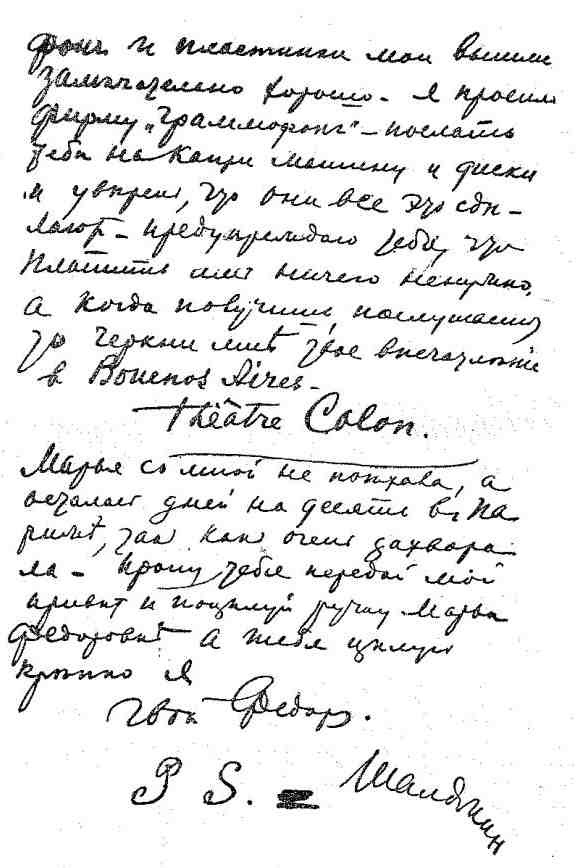 фонъ и пластинки мои вышли
замѣчательно хорошо — я просилъ
фирму „Граммофонъ“ — послать
тебѣ на Капри машину и диски
и увѣренъ, что они все это сдѣ-
лаютъ — предупреждаю тебя, что
платить имъ ничего ненужно,
а когда получишь, послушаешь
то черкни мнѣ твое впечатлѣнiе
в Bouenos Aires —
Théâtre Colon.
Марья со мной не поѣхала, а
осталась дней на десять въ Па
рижѣ, так как очень захвора
ла — прошу тебя передай мой
привѣт и поцѣлуй ручку Марьи
Федоровнѣ а тебя цѣлую
крѣпко я
твой Федоръ.
P S. = Шаляпин